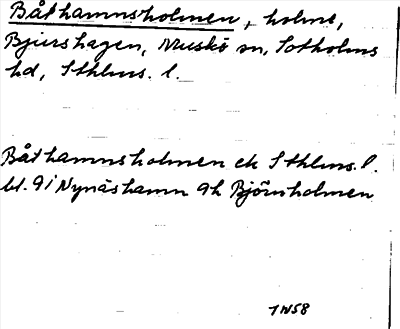 Båthamnsholmen, holme,
Bjurshagen, Muskö sn, Sotholms
hd, Sthlms. l.
Båthamnsholmen ek Sthlms. l.
bl. 9i Nynäshamn 9h Björnholmen
1N58